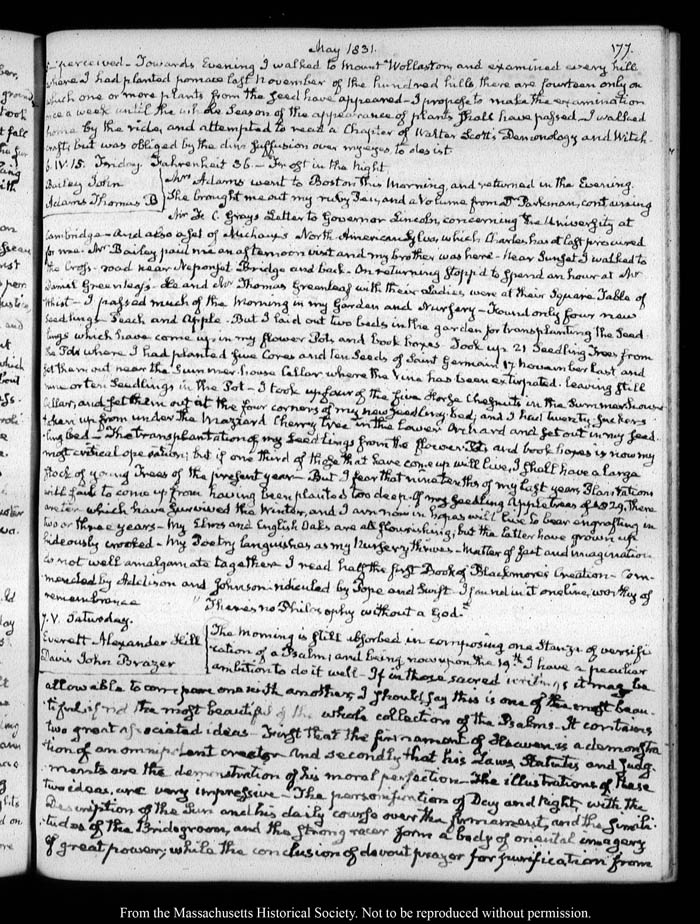 May 1831. 177.
perceived - Towards Evening I walked to Mount Wollaston, and examined every hill
where I had planted pomace last November of the hundred hills there are fourteen only on
which one or more plants from the seed have appeared - I propose to make the examination
once a week until the whole Season of the appearance of plants shall have passed - I walked
home by the ride, and attempted to read a Chapter of Walter Scott's Demonology and Witch-
craft; but was obliged by the dim suffusion over my eyes to desist
6. IV:15. Friday. Fahrenheit 36 - Frost in the night
Bailey John
Adams Thomas B
Mrs Adams went to Boston this Morning, and returned in the Evening.
She brought me out my ruby Tea, and a Volume from Dr Parkman, containing
Mr F. C. Gray's Letter to Governor Lincoln, concerning the University at
Cambridge - And also a Set of Michaux's North American Sylva, which Charles has at last procured
for me. Mr Bailey paid me an afternoon visit and my brother was here - Near Sunset I walked to
the Cross-road near Neponset Bridge and back - On returning stopp'd to spend an hour at Mr
Daniel Greenleaf's - He and Mr Thomas Greenleaf with their Ladies, were at their Square Table of
Whist - I passed much of the Morning in my Garden and Nursery - Found only four new
Seedlings - Peach and Apple - But I laid out two beds in the garden for transplanting the Seed-
lings which have come up in my flower Pots and book boxes. Took up 21 Seedling Trees from
the Pots where I had planted five Cores and ten Seeds of Saint Germain 17 November last and
set them out near the Summer-house Cellar where the Vine has been extirpated. leaving still
nine or ten Seedlings in the Pot - I took up four of the five Horse Chesnuts in the Summerhouse
Cellar, and set them out at the four corners of my new Seedling bed, and I had twenty suckers
taken up from under the Mazzard Cherry tree in the Lower Orchard and set out in my Seed-
ling bed - The transplantation of my Seedlings from the flower Pots and book boxes is now my
most critical operation; but if one third of those that have come up will live, I shall have a large
stock of young Trees of the present year - But I fear that nine tenths of my last years Plantations
will fail to come up from having been planted too deep. Of my Seedling Apple trees of 1829, there
are ten which have survived the Winter, and I am now in hopes will live to bear engrafting in
two or three years - My Elms and English Oaks are all flourishing, but the latter have grown up
hideously crooked - My Poetry languishes as my Nursery thrives - Matter of fact and imagination
do not well amalgamate together. I read half the first Book of Blackmore's Creation - Com-
mended by Addison and Johnson ridiculed by Pope and Swift - I found in it one line, worthy of
remembrance "There's no Philosophy without a God."
7. V. Saturday.
Everett Alexander Hill
Davis John Brazer
The Morning is still absorbed in composing one Stanza of versifi-
cation of a Psalm; and being now upon the 19th I have a peculiar
ambition to do it well - If in those sacred writings it may be
allowable to compare one with another, I should say this is one of the most beau-
tiful, if not the most beautiful of the whole collection of the Psalms - It contains
two great associated ideas - First that the firmament of Heaven is a demonstra-
tion of an omnipotent creator - And secondly that his Laws, Statutes and Judg-
ments are the demonstration of his moral perfection - The illustrations of these
two ideas, are very impressive - The personification of Day and Night, with the
Description of the Sun and his daily course over the firmament, and the simili-
tudes of the Bridegroom, and the strong racer form a body of oriental imagery
of great power; while the conclusion of devout prayer for purification from
From the Massachusetts Historical Society. Not to be reproduced without permission.